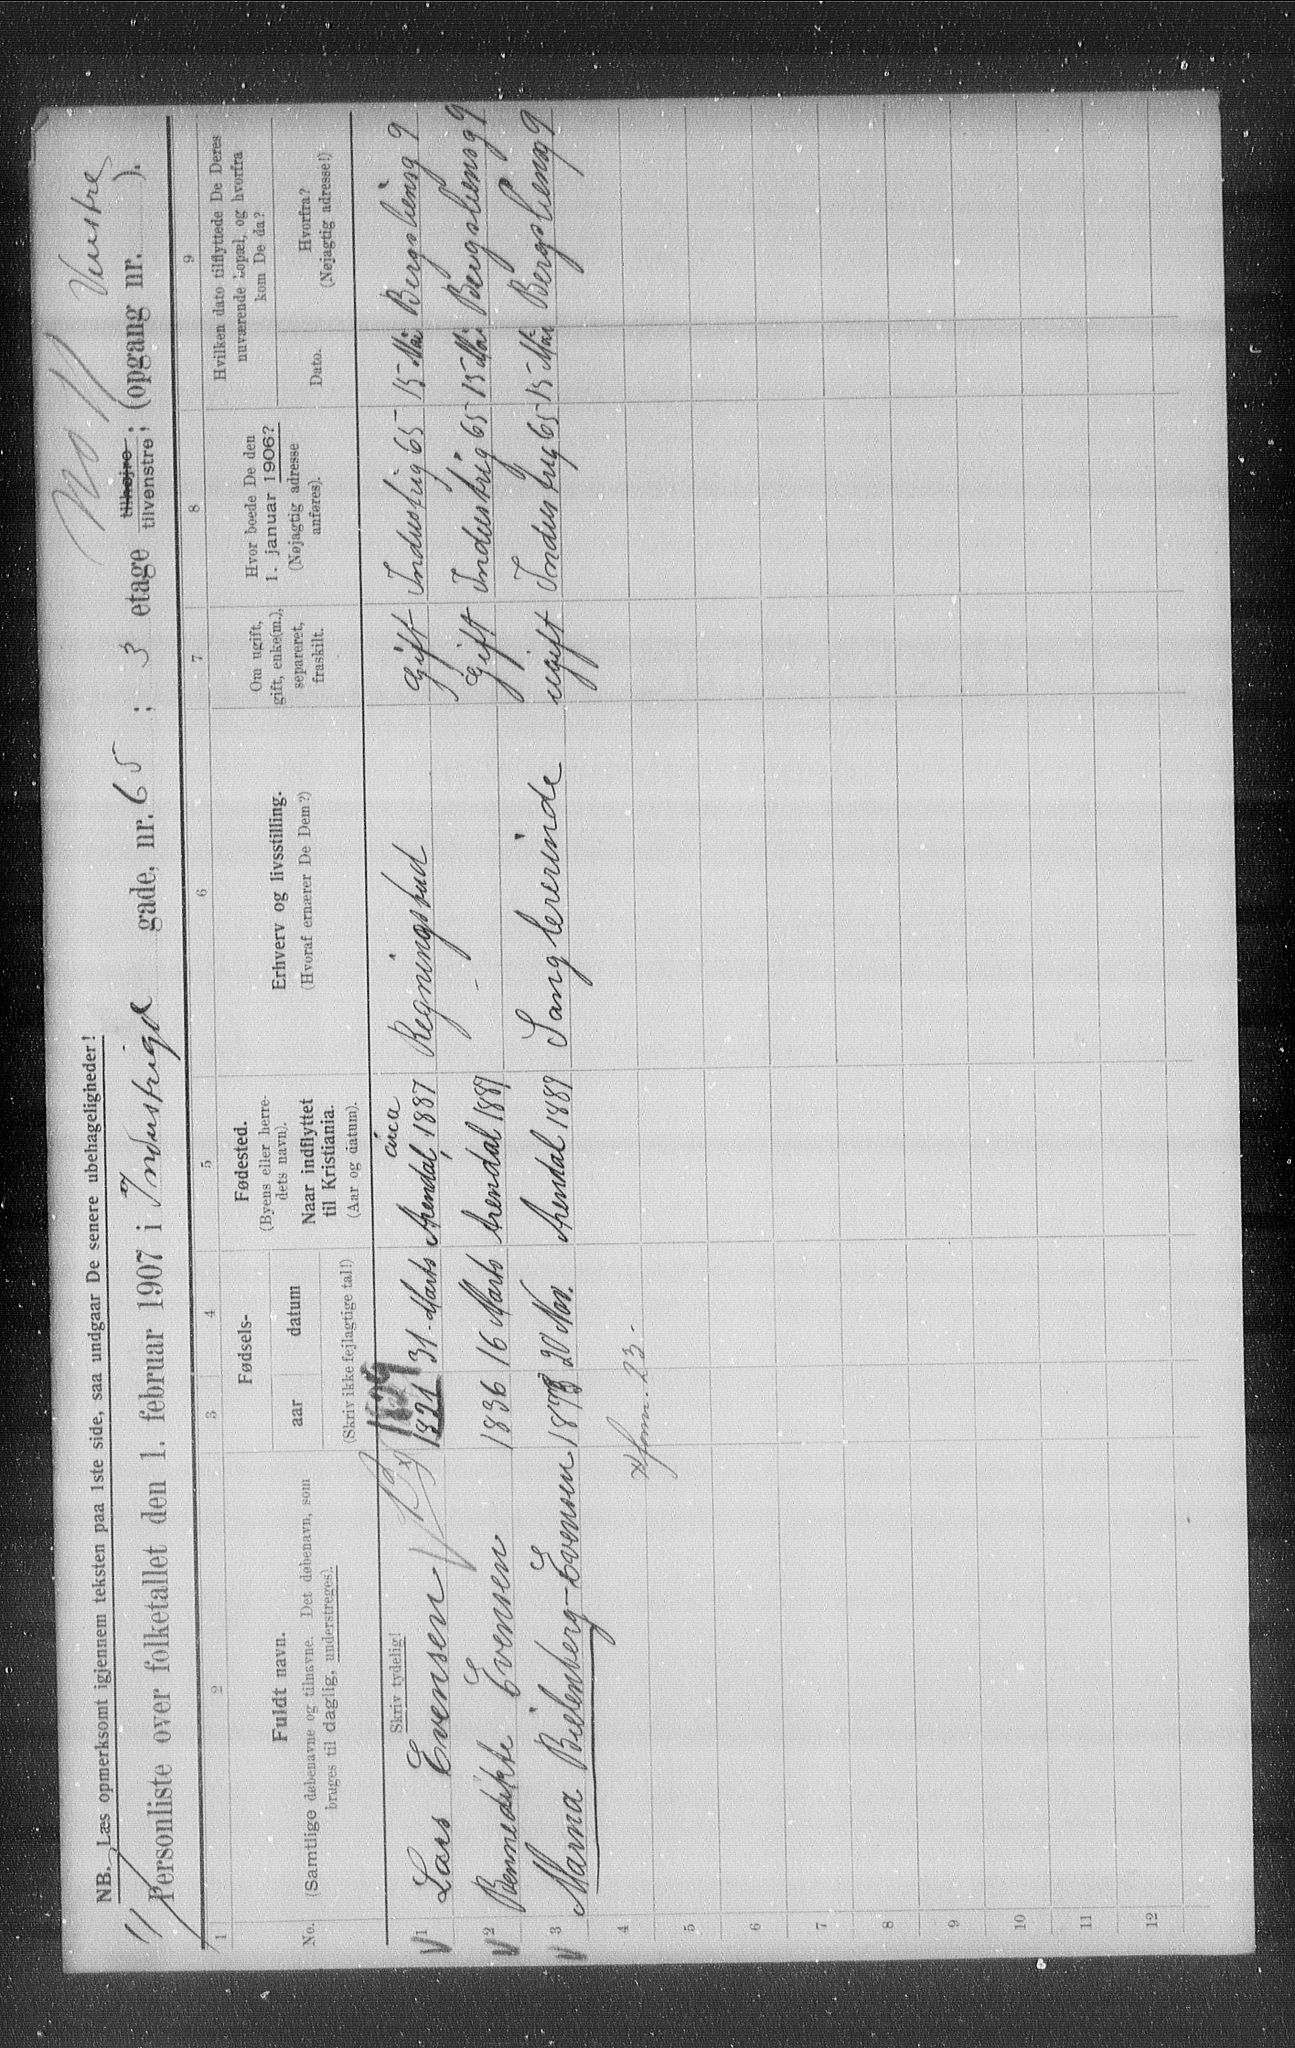 Venstre
NB. Læs opmerksomt igjennem teksten paa 1ste side, saa undgaar De senere ubehageligheder!
Personliste over folketallet den 1. februar 1907 i Industrigd gade, nr. 65 ; 3 etage tilhøjre tilvenstre ; (opgang nr. ).
1 2 3 4 5 6 7 8 9
No.
Fuldt navn.
(Samtlige døbenavne og tilnavne. Det døbenavn, som
bruges til daglig, understreges).
Fødsels-
aar datum
(Skriv ikke fejlagtige tal!)
Fødested.
(Byens eller herre-
dets navn).
Naar indflyttet
til Kristiania.
(Aar og datum).
Erhverv og livsstilling.
(Hvoraf ernærer De Dem?)
Om ugift,
gift, enke(m.),
separeret,
fraskilt.
Hvor boede De den
1. januar 1906?
(Nøjagtig adresse
anføres).
Hvilken dato tilflyttede De Deres
nuværende Lopæl, og hvorfra
kom De da?
Dato.
Hvorfra?
(Nøjagtig adresse!)
Skriv tydelig!
1829 circa
V 1 Lars Evensen 1821 31 - Marts Arendal, 1887 Regningsbud Gift Industrig 65 - 15 Mai Bergsliensg 9
V 2 Bennedikte Evensen 1836 16 Marts Arendal 1887 - Gift Industrig 65 - 15 Mai Bergsliensg 9
V 3 Marna Bielenberg-Evensen 20 Nov. Arendal 1887 Sanglererinde ugift Industrig 65 - 15 Mai Bergsliensg 9
4
5
6
7
8
9
10
11
12